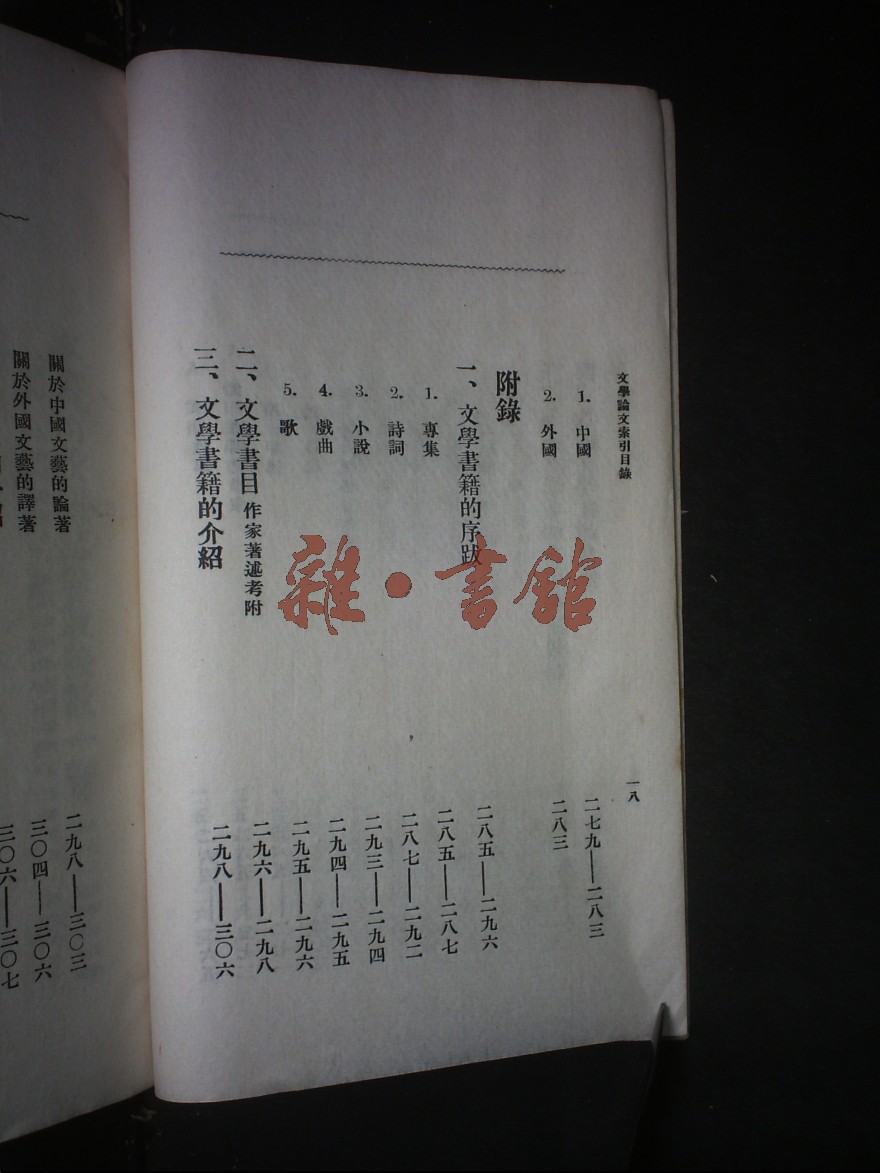 文學論文索引目錄 一八
1. 中國 二七九——二八三
2. 外國 二八三
附錄
一、文學書籍的序跋 二八五——二九六
1. 專集 二八五——二八七
2. 詩詞 二八七——二九二
3. 小說 二九三——二九四
4. 戲曲 二九四——二九五
5. 歌 二九五——二九六
二、文學書目 作家著述考附 二九六——二九八
三、文學書籍的介紹 二九八——三〇六
關於中國文藝的論著 二九八——三〇三
關於外國文藝的譯著 三〇四——三〇六
三〇六——三〇七
雜·書館